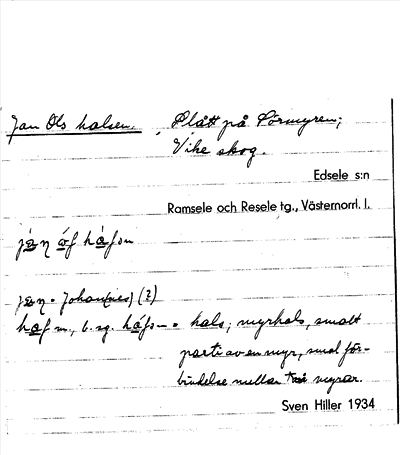 Jan Ols halsen. Slått på Sörmyren;
Vike skog.
Edsele s:n
Ramsele och Resele tg., Västernorrl. l.
Johan(nes) (?)
m., b. sg. = hals, myrhals, smalt
parti av en myr, smal för-
bindelse mellan två myrar.
Sven Hiller 1934